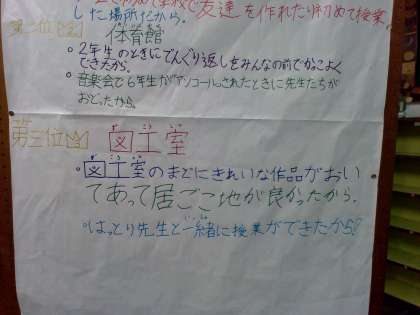 した場所だから。
第二位 体育館
・2年生のときにでんぐり返しをみんなの前でかっこよく
できたから。
・音楽会で6年生がアンコールされたときに先生たちが
おどったから。
第三位 図工室
・図工室のまどにきれいな作品がおい
てあって居ごこ地が良かったから。
・はっとり先生と一緒に授業ができたから!